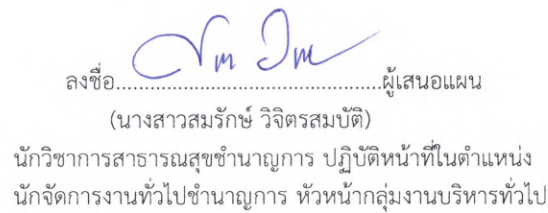 ลงชื่อ..........................................ผู้เสนอแผน
(นางสาวสมรักษ์ วิจิตรสมบัติ)
นักวิชาการสาธารณสุขชำนาญการ ปฏิบัติหน้าที่ในตำแหน่ง
นักจัดการงานทั่วไปชำนาญการ หัวหน้ากลุ่มงานบริหารทั่วไป